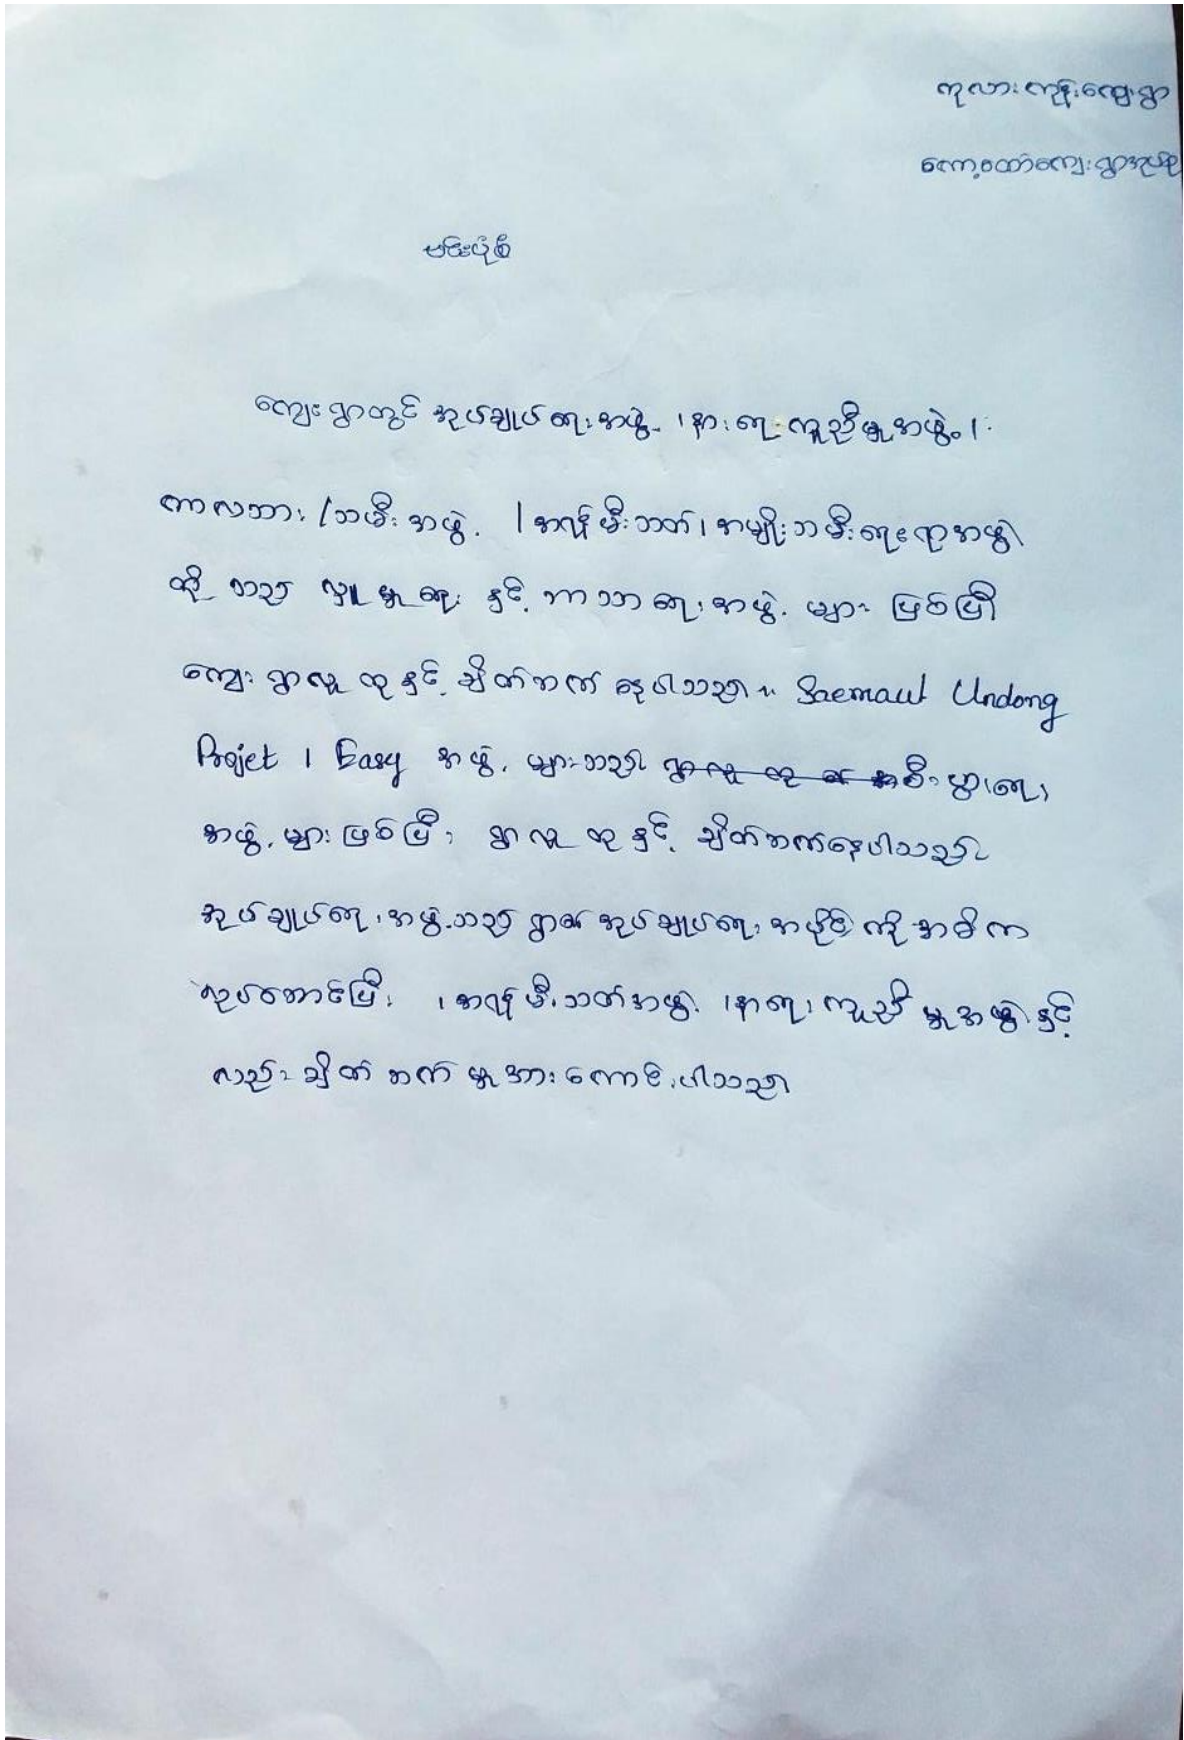 ကုလားကုန်းကျေးရွာ
ကော့စထော်ကျေးရွာအုပ်စု
ကျေးရွာတွင် အုပ်ချုပ်ရေးအဖွဲ့ ၊နာရေးကူညီမှုအဖွဲ့၊
ကာလသား/သမီးအဖွဲ့ ၊အရန်မီးသတ်၊ အမျိုးသမီးရေးရာအဖွဲ့
တို့သည် လူမှုရေးနှင့် ဘာသာရေးအဖွဲ့များ ဖြစ်ပြီး
ကျေးရွာလူထုနှင့် ချိတ်ဆက်နေပါသည်။ Saemaul Undong
Projet ၊ Easy အဖွဲ့များသည် စီးပွားရေး
အဖွဲ့များဖြစ်ပြီး ရွာလူထုနှင့် ချိတ်ဆက်နေပါသည်။
အုပ်ချုပ်ရေးအဖွဲ့သည် ရွာ၏ အုပ်ချုပ်ရေးအပိုင်းကို အဓိက
လုပ်ဆောင်ပြီး ၊အရန်မီးသတ်အဖွဲ့ ၊နာရေးကူညီမှုအဖွဲ့နှင့်
လည်း ချိတ်ဆက်မှုအားကောင်းပါသည်။